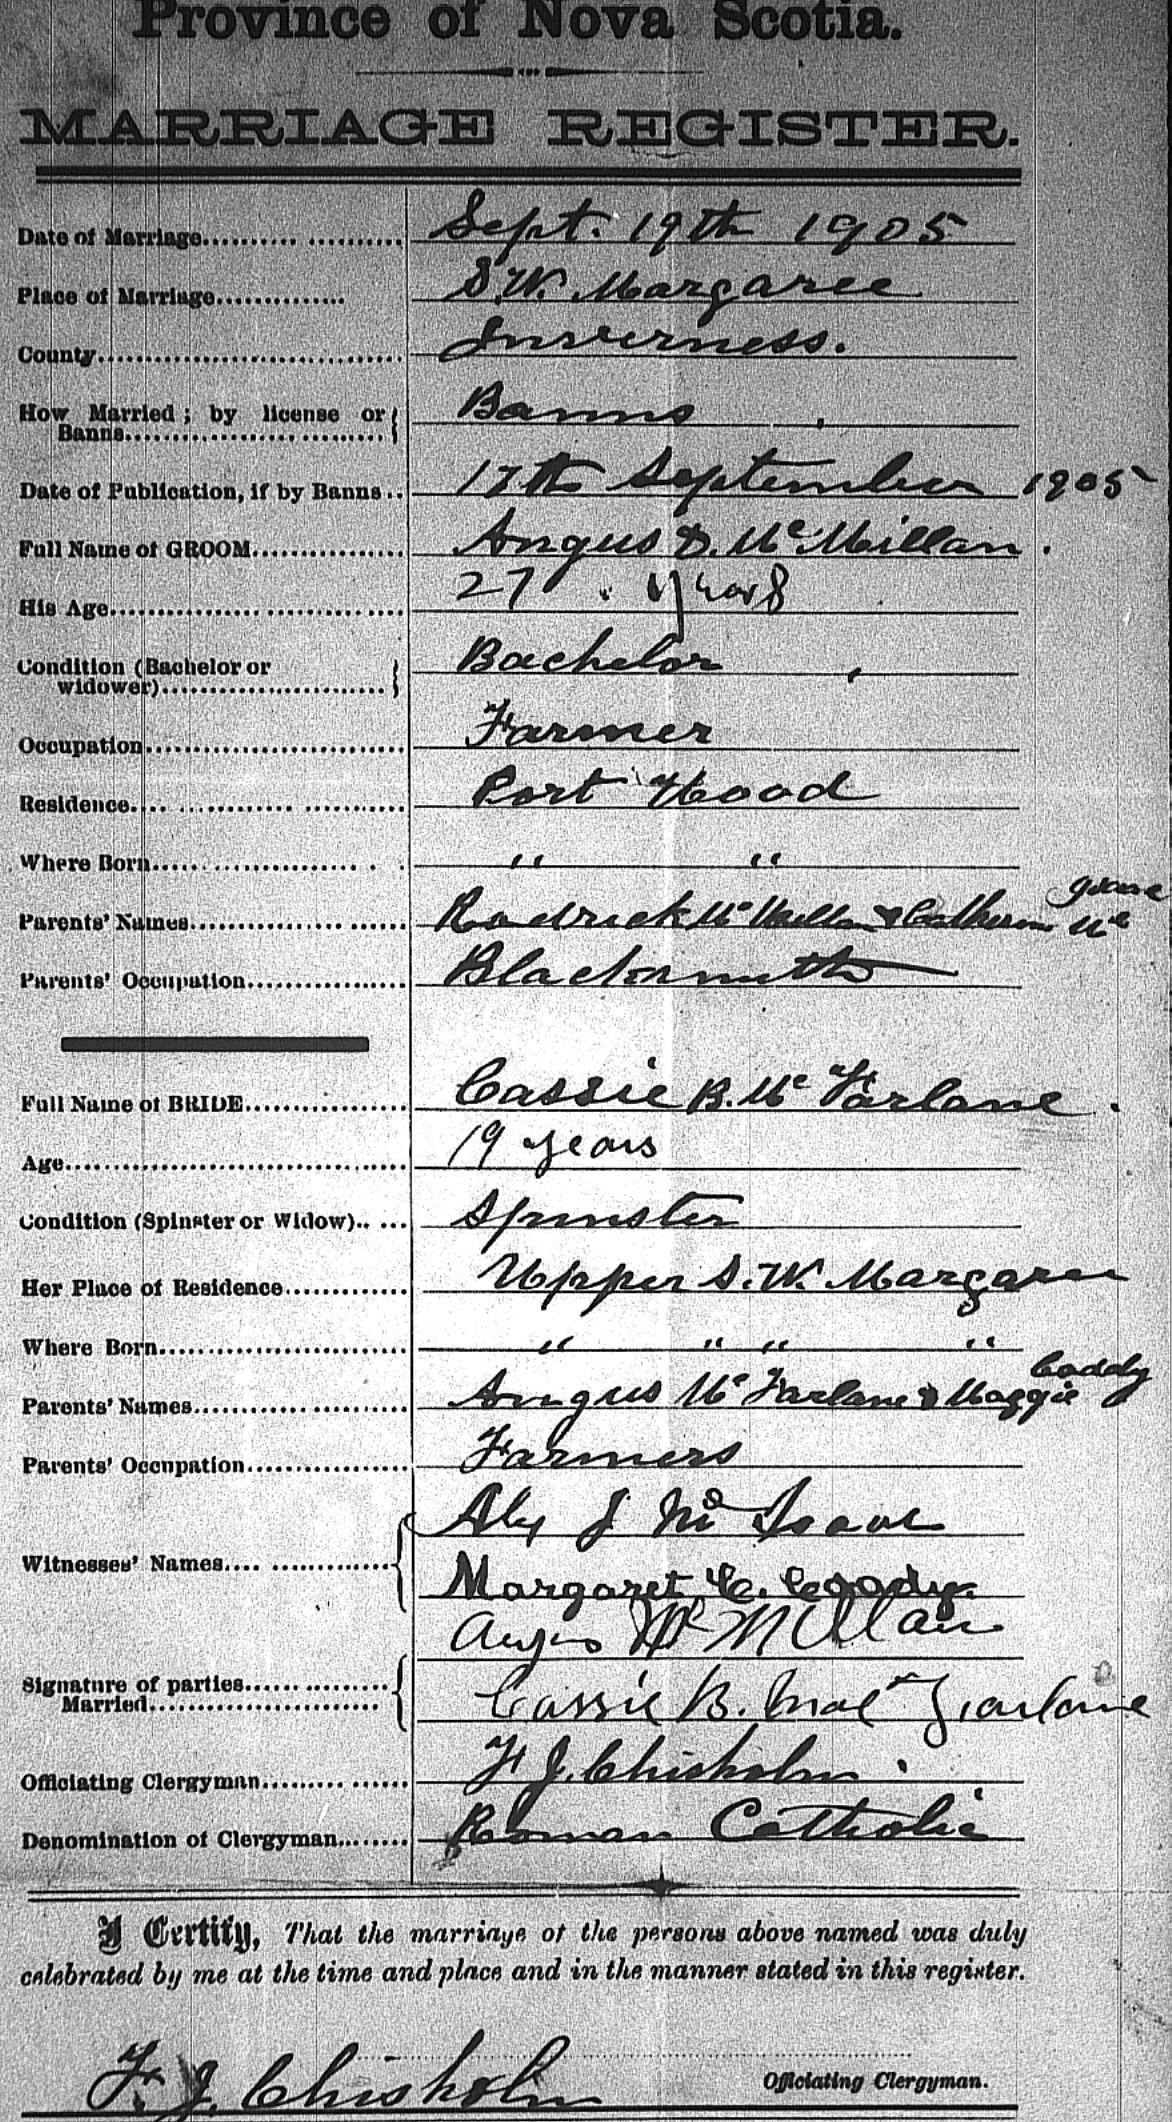 Province of Nova Scotia.
MARRIAGE REGISTER.
Date of Marriage.... Sept. 19th 1905
Place of Marriage.... S.W. Margaree
County.... Inverness.
How Married ; by license or
Banns.... Banns
Date of Publication, if by Banns.. 17th September 1905
Full Name of GROOM.... Angus D. McMillan.
His Age.... 27 years
Condition (Bachelor or
widower).... Bachelor
Occupation.... Farmer
Residence.... Port Hood
Where Born.... " "
Parents' Names.... Rodrick McMillan & Catherine Mc
Parents' Occupation.... Blacksmith
Full Name of BRIDE.... Cassie B. McFarlane.
Age.... 19 years
Condition (Spinster or Widow).. ... Spinster
Her Place of Residence.... Upper S.W. Margaree
Where Born.... " " " "
Parents' Names.... Angus McFarlane & Maggie Coady
Parents' Occupation.... Farmers
Witnesses' Names.... Alex J McIsaac
Margaret C. Coody.
Angus McMillan
Signature of parties
Married.... Cassie B. MacFarlane
Officiating Clergyman.... F J. Chisholm
Denomination of Clergyman.... Roman Catholic
I Certify, That the marriage of the persons above named was duly
celebrated by me at the time and place and in the manner stated in this register.
F. J. Chisholm
Officiating Clergyman.